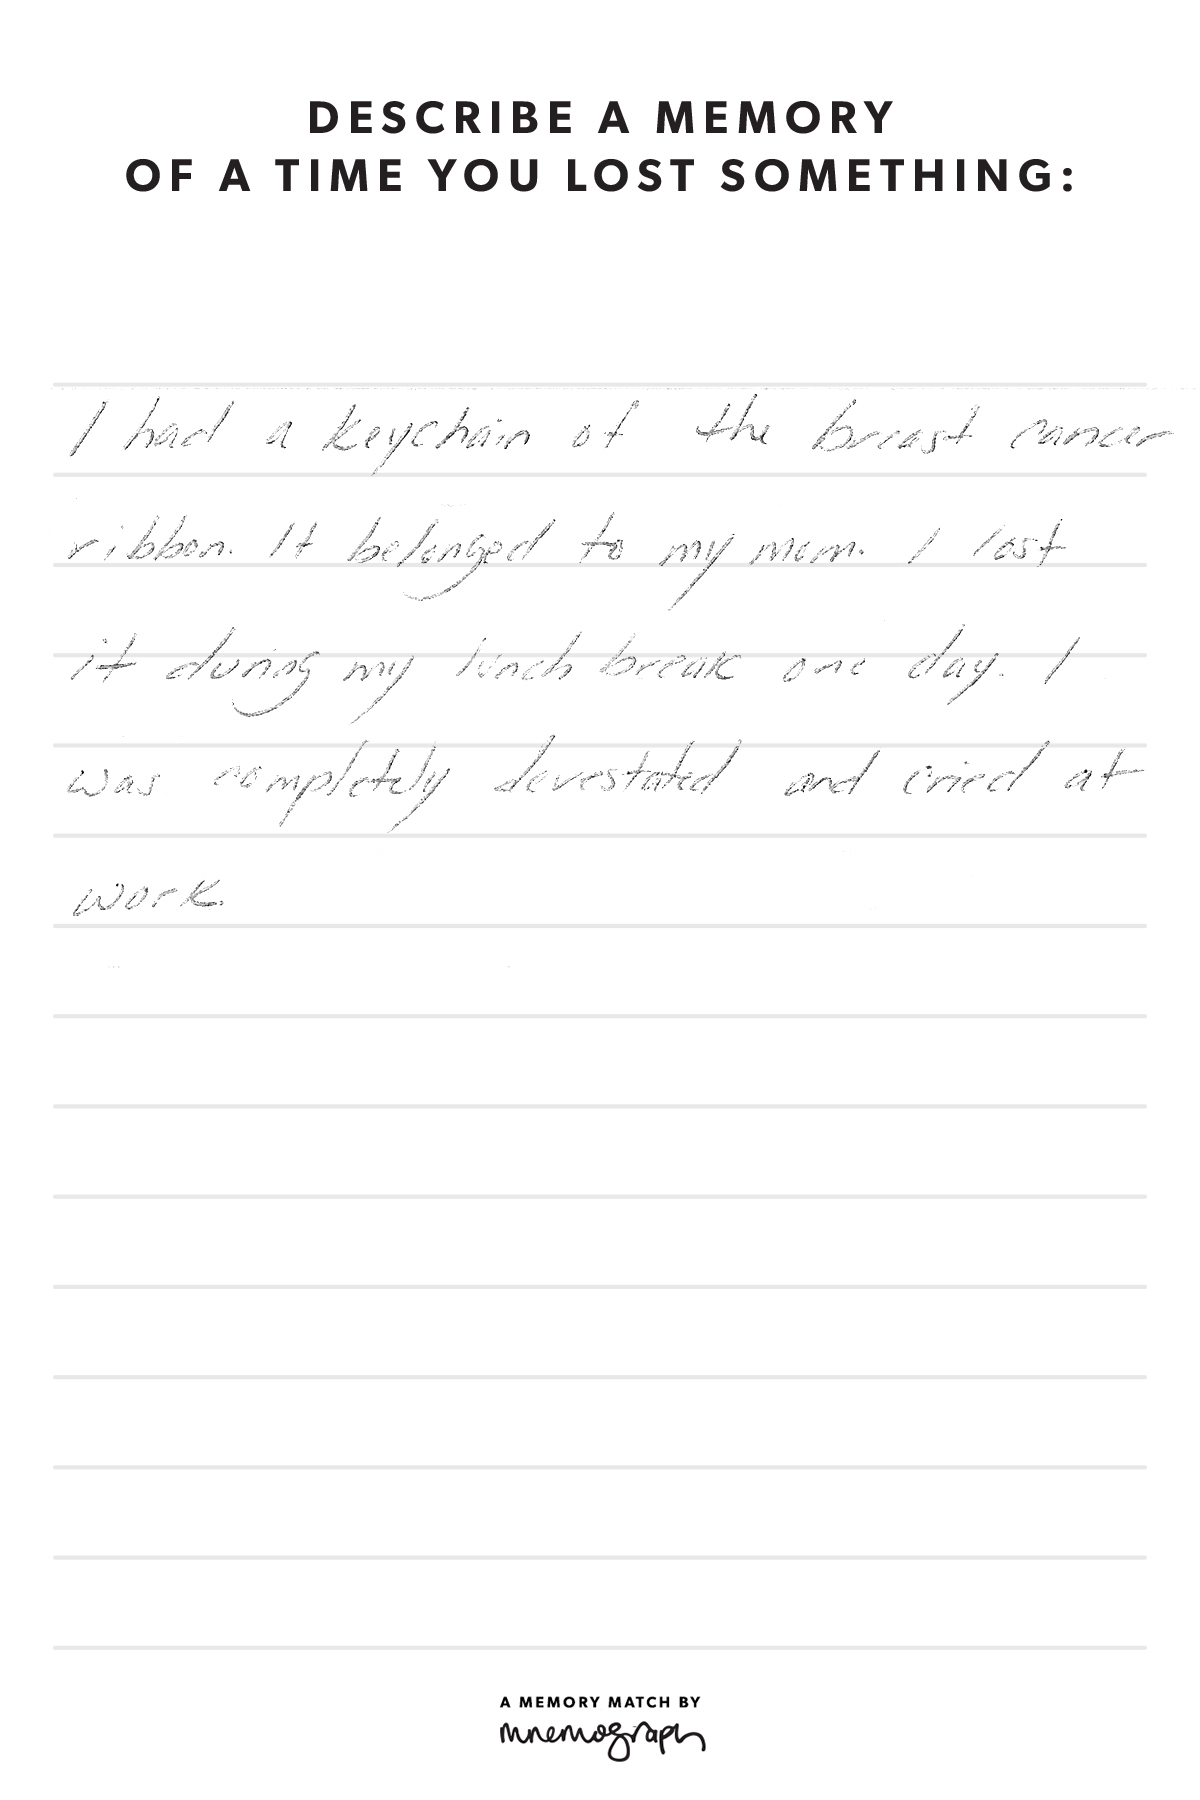 DESCRIBE A MEMORY
OF A TIME YOU LOST SOMETHING:
I had a keychain of the breast cancer
ribbon. It belonged to my mom. I lost
it during my lunch break one day. I
was completely devestated and cried at
work.
A MEMORY MATCH BY
mnemograph